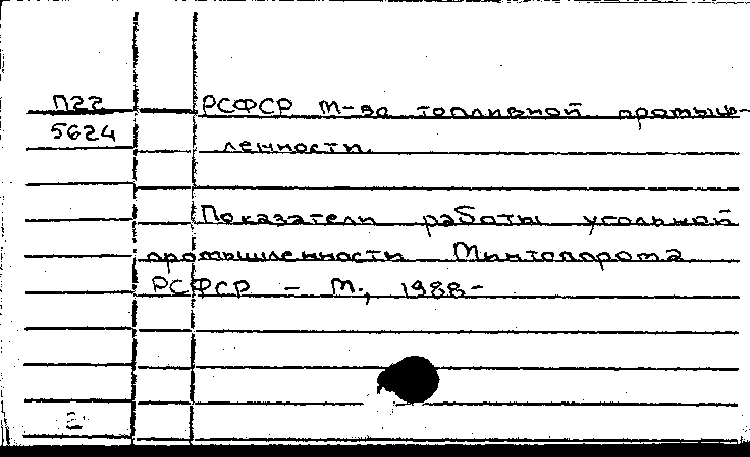 П22
5624
РСФСР М-во топливной промыш-
ленности.
Показатели работы угольной
промышленности Минтоппрома
РСФСР - М., 1988-
2